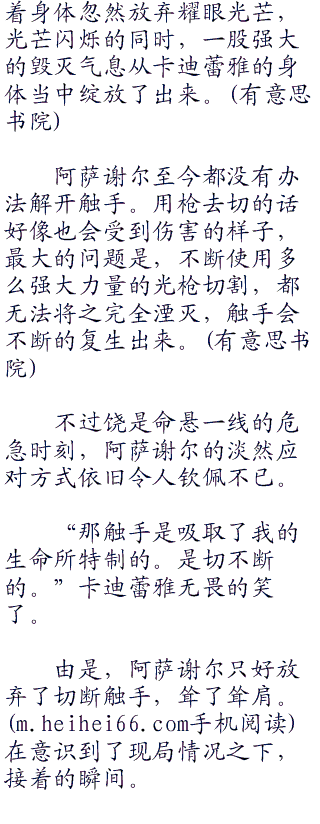 着身体忽然放弃耀眼光芒，
光芒闪烁的同时，一股强大
的毁灭气息从卡迪蕾雅的身
体当中绽放了出来。(有意思
书院)
阿萨谢尔至今都没有办
法解开触手。用枪去切的话
好像也会受到伤害的样子，
最大的问题是，不断使用多
么强大力量的光枪切割，都
无法将之完全湮灭，触手会
不断的复生出来。(有意思书
院)
不过饶是命悬一线的危
急时刻，阿萨谢尔的淡然应
对方式依旧令人钦佩不已。
“那触手是吸取了我的
生命所特制的。是切不断
的。”卡迪蕾雅无畏的笑
了。
由是，阿萨谢尔只好放
弃了切断触手，耸了耸肩。
(m.heihei66.com手机阅读)
在意识到了现局情况之下，
接着的瞬间。